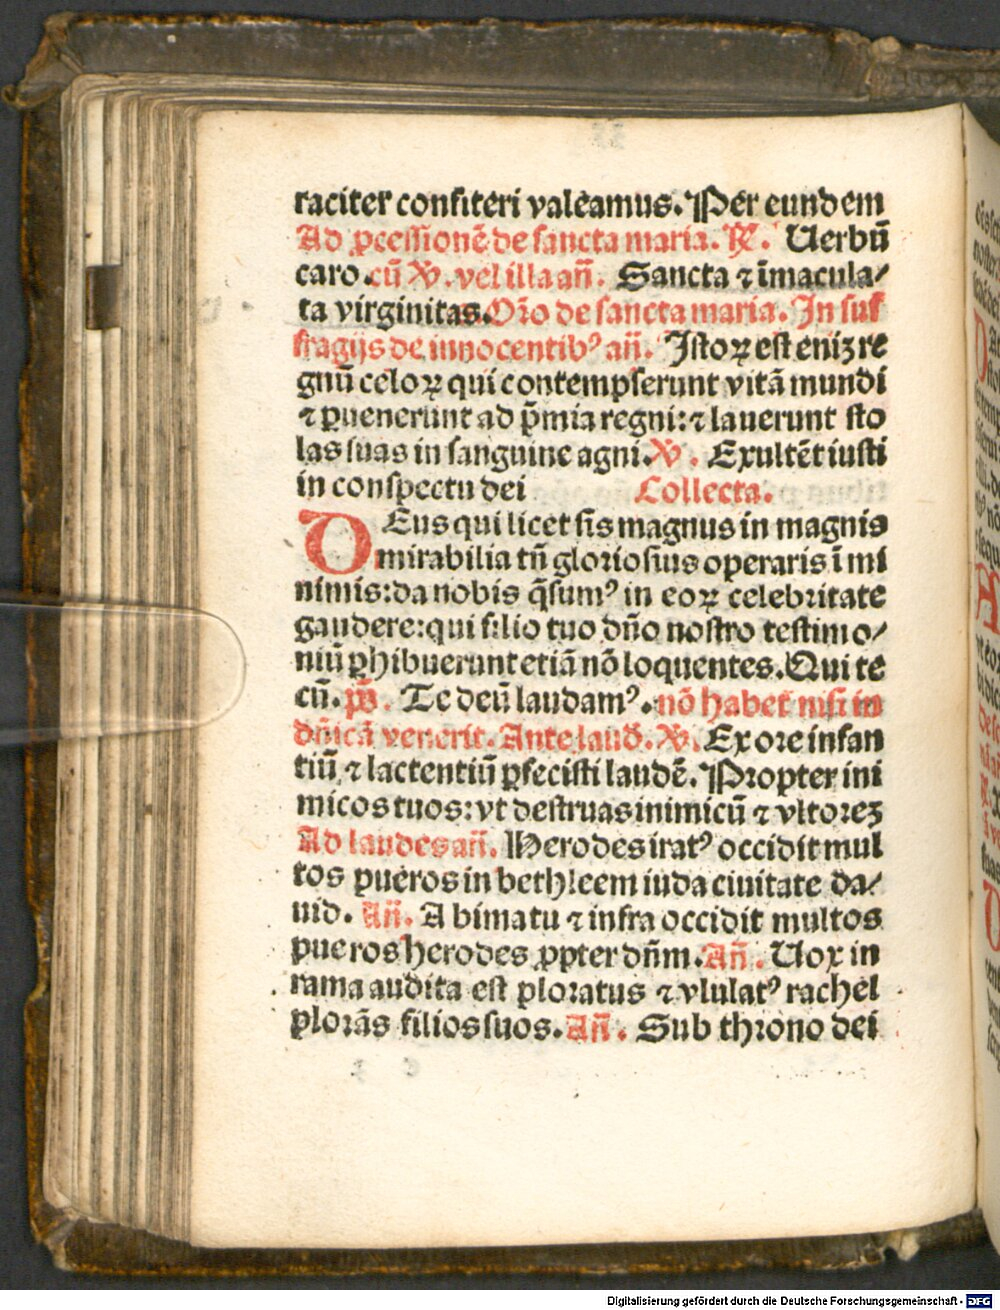 raciter confiteri valeamus. Per eundem
Ad ꝓcessionē de sancta maria. ℟. Uerbū
caro. cū ℣. vel illa añ. Sancta ⁊ īmacula/
ta virginitas. Orō de sancta maria. In suf
fragijs de innocentibꝰ añ. Istoꝝ est eniꝫ re
gnū celoꝝ qui contempserunt vitā mundi
⁊ ꝑuenerunt ad p̄mia regni: ⁊ lauerunt sto
las suas in sanguine agni. ℣. Exultēt iusti
in conspectu dei Collecta.
DEus qui licet sis magnus in magnis
mirabilia tñ gloriosius operaris ī mi
nimis: da nobis q̄sumꝰ in eoꝝ celebritate
gaudere: qui filio tuo dño nostro testimo/
niū ꝑhibuerunt etiā nō loquentes. Qui te
cū. p̄s. Te deū laudamꝰ. nō habet nisi in
dñicā venerit. Ante laud̄. ℣. Ex ore infan
tiū ⁊ lactentiū ꝑfecisti laudē. Propter ini
micos tuos: vt destruas inimicū ⁊ vltoreꝫ
Ad laudes añ. Herodes iratꝰ occidit mul
tos pueros in bethleem iuda ciuitate da/
uid. Añ. A bimatu ⁊ infra occidit multos
pueros herodes ꝓpter dñm. Añ. Uox in
rama audita est ploratus ⁊ vlulatꝰ rachel
plorās filios suos. Añ. Sub throno dei
Digitalisierung gefördert durch die Deutsche Forschungsgemeinschaft - DFG